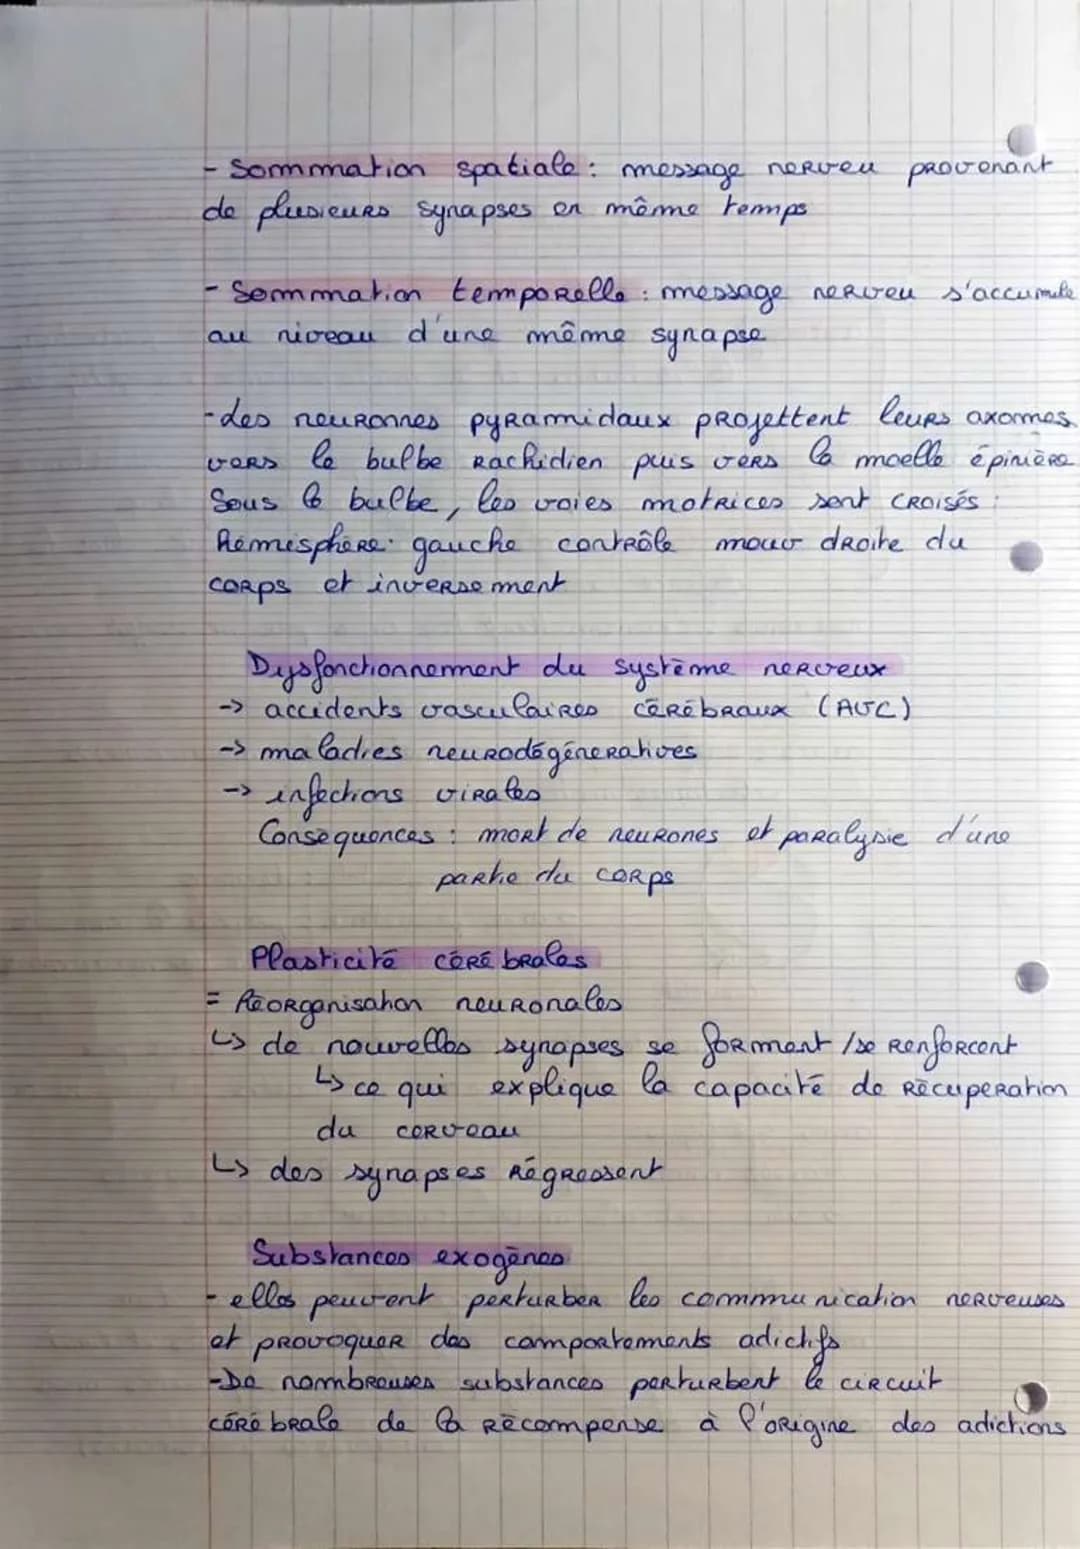 - Sommation spatiale : message nerveu provenant
de plusieurs synapses en même temps
- Sommation temporelle : message nerveu s'accumule
au niveau d'une même synapse
- des neuronnes pyramidaux projettent leurs axomes
vers le bulbe Rachidien puis vers la moelle épinière
Sous le bulbe, les voies motrices sont croisés :
Hémisphère gauche contrôle mouv droite du
corps et inversement
Dysfonctionnement du système nerveux
-> accidents vasculaires cérébraux (AVC)
-> maladies neurodégéneratives
-> infections virales
Consequences : mort de neurones et paralysie d'une
partie du corps
Plasticité cérébrales
= Réorganisation neuronales
↳ de nouvelles synapses se forment / se renforcent
↳ ce qui explique la capacité de récuperation
du cerveau
↳ des synapses régressent
Substances exogènes
- elles peuvent perturber les communication nerveuses
et provoquer des comportements adictifs
- De nombreuses substances perturbent le circuit
cérébrale de la récompense à l'origine des adictions